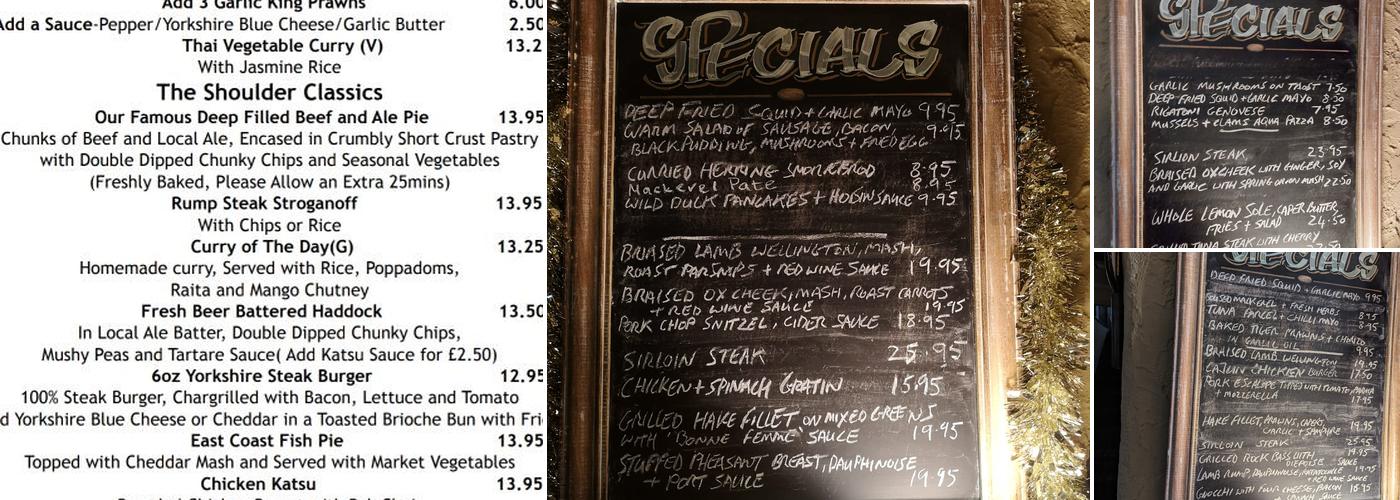 Add 3 Garlic King Prawns 6.00
Add a Sauce-Pepper/Yorkshire Blue Cheese/Garlic Butter 2.50
Thai Vegetable Curry (V) 13.2
With Jasmine Rice
The Shoulder Classics
Our Famous Deep Filled Beef and Ale Pie 13.95
Chunks of Beef and Local Ale, Encased in Crumbly Short Crust Pastry
with Double Dipped Chunky Chips and Seasonal Vegetables
(Freshly Baked, Please Allow an Extra 25mins)
Rump Steak Stroganoff 13.95
With Chips or Rice
Curry of The Day(G) 13.25
Homemade curry, Served with Rice, Poppadoms,
Raita and Mango Chutney
Fresh Beer Battered Haddock 13.50
In Local Ale Batter, Double Dipped Chunky Chips,
Mushy Peas and Tartare Sauce( Add Katsu Sauce for £2.50)
6oz Yorkshire Steak Burger 12.95
100% Steak Burger, Chargrilled with Bacon, Lettuce and Tomato
d Yorkshire Blue Cheese or Cheddar in a Toasted Brioche Bun with Frie
East Coast Fish Pie 13.95
Topped with Cheddar Mash and Served with Market Vegetables
Chicken Katsu 13.95
SPECIALS
DEEP FRIED SQUID + GARLIC MAYO 9.95
WARM SALAD OF SAUSAGE, BACON, 9.95
BLACK PUDDING, MUSHROOMS + FRIED EGG
CURRIED HERRING SMORREBROD 8.95
Mackerel Pate 8.95
WILD DUCK PANCAKES + HOISIN SAUCE 9.95
BRAISED LAMB WELLINGTON, MASH,
ROAST PARSNIPS + RED WINE SAUCE 19.95
BRAISED OX CHEEK, MASH, ROAST CARROTS
+ RED WINE SAUCE 19.95
PORK CHOP SNITZEL, CIDER SAUCE 18.95
SIRLOIN STEAK 25.95
CHICKEN + SPINACH GRATIN 15.95
GRILLED HAKE FILLET ON MIXED GREENS
WITH 'BONNE FEMME' SAUCE 19.95
STUFFED PHEASANT BREAST, DAUPHINOISE
+ PORT SAUCE 19.95
SPECIALS
GARLIC MUSHROOMS ON TOAST 7.50
DEEP FRIED SQUID + GARLIC MAYO 8.50
RIGATONI GENOVESE 7.95
MUSSELS + CLAMS AQUA PAZZA 8.50
SIRLION STEAK 23.95
BRAISED OXCHEEK WITH GINGER, SOY
AND GARLIC WITH SPRING ONION MASH 22.50
WHOLE LEMON SOLE, CAPER BUTTER,
FRIES + SALAD 24.50
GRILLED TUNA STEAK WITH CHERRY
SPECIALS
DEEP FRIED SQUID + GARLIC MAYO 9.95
MACKEREL + FRESH HERBS 8.95
TUNA PARCEL + CHILLI MAYO 8.95
BAKED TIGER PRAWNS + CHORIZO
IN GARLIC OIL
BRAISED LAMB WELLINGTON 19.95
CAJUN CHICKEN BURGER 17.50
PORK ESCALOPE TOPPED WITH TOMATO,
+ MOZZERELLA 17.95
HAKE FILLET, PRAWNS,
GARLIC + SAMPHIRE 19.95
SIRLOIN STEAK 25.95
GRILLED ROCK BASS WITH 19.95
DIEPOISE SAUCE
LAMB RUMP, DAUPHINOISE, RATATOUILLE 19.95
+ RED WINE SAUCE
GNOCCHI WITH FOUR CHEESE, BACON 16.95